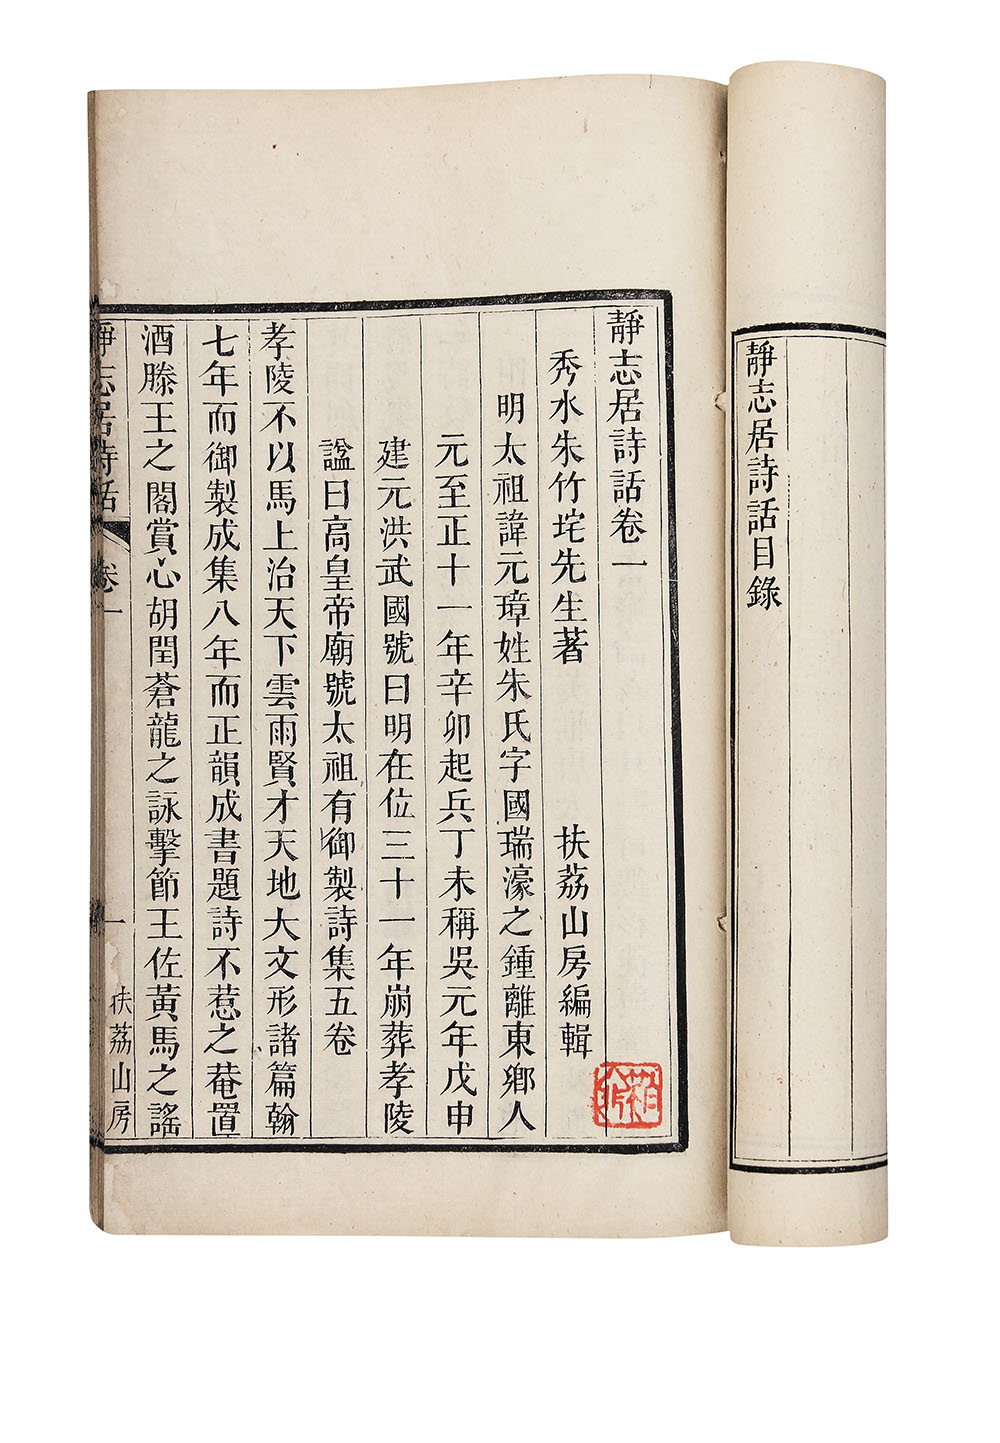 靜志居詩話目錄
靜志居詩話卷一
秀水朱竹垞先生著　扶荔山房編輯
明太祖諱元璋姓朱氏字國瑞濠之鍾離東鄉人
元至正十一年辛卯起兵丁未稱吳元年戊申
建元洪武國號曰明在位三十一年崩葬孝陵
諡曰高皇帝廟號太祖有御製詩集五卷
孝陵不以馬上治天下雲雨賢才天地大文形諸篇翰
七年而御製成集八年而正韻成書題詩不惹之菴置
酒滕王之閣賞心胡閏蒼龍之詠擊節王佐黃馬之謠
靜志居詩話　卷一　一　扶荔山房